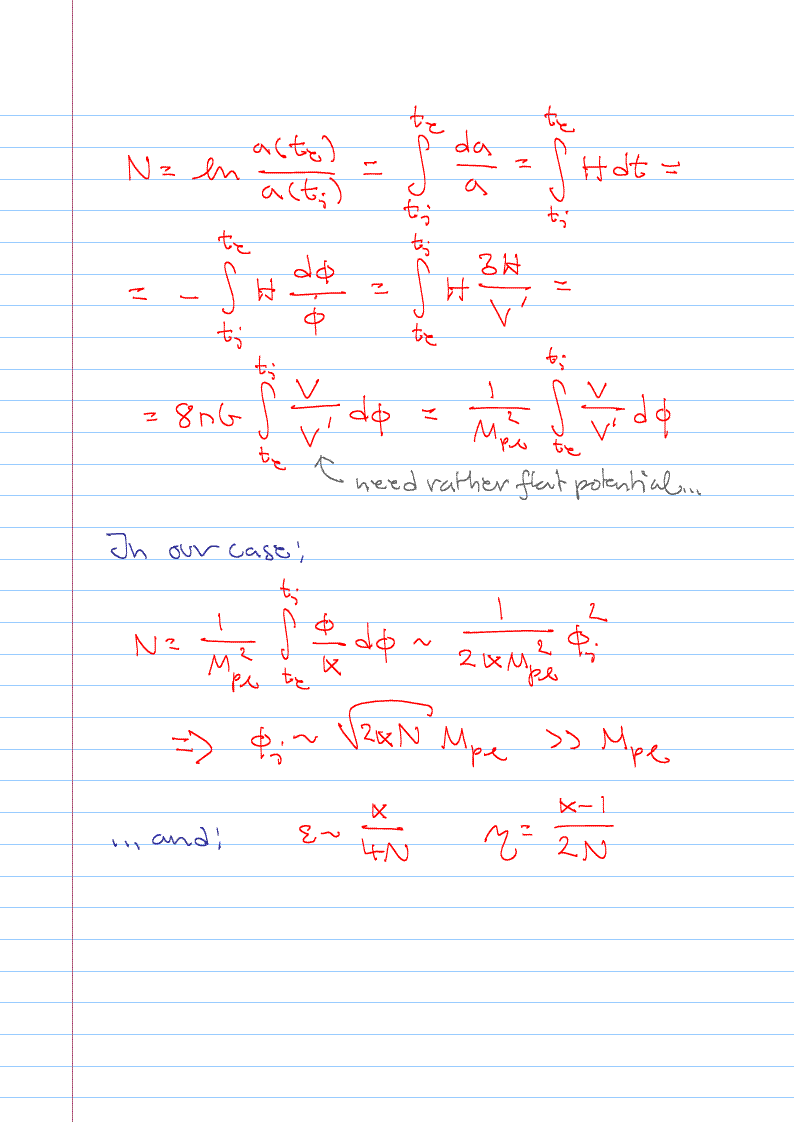 N = ln a(t_e)/a(t_i) = ∫_{t_i}^{t_e} da/a = ∫_{t_i}^{t_e} H dt =
= - ∫_{t_i}^{t_e} H dϕ/ϕ = ∫_{t_e}^{t_i} H 3H/V' =
= 8πG ∫_{t_e}^{t_i} V/V' dϕ = 1/M_{pl}^2 ∫_{t_e}^{t_i} V/V' dϕ
need rather flat potential...
In our case:
N = 1/M_{pl}^2 ∫_{t_e}^{t_i} ϕ/α dϕ ~ 1/(2αM_{pl}^2) ϕ_i^2
=> ϕ_i ~ √(2αN) M_{pl} >> M_{pl}
... and: ε ~ α/4N η = (α-1)/2N